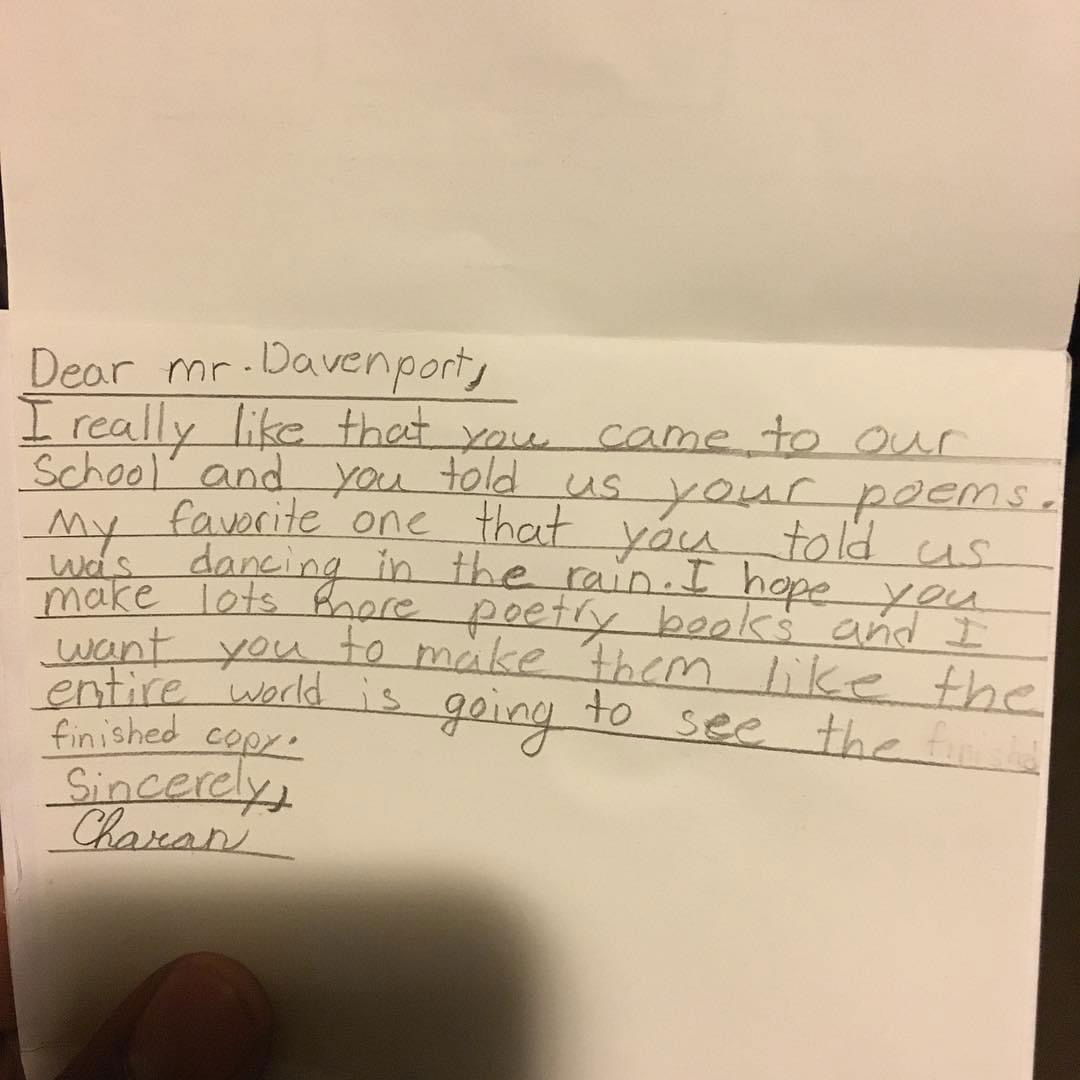 Dear mr. Davenport,
I really like that you came to our
School and you told us your poems.
My favorite one that you told us
was dancing in the rain. I hope you
make lots more poetry books and I
want you to make them like the
entire world is going to see the
finished copy.
Sincerely,
Charan